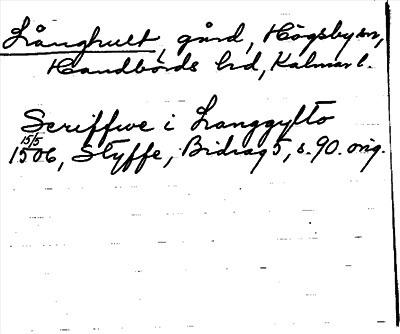 Långhult, gård, Högsby sn,
Handbörds hd, Kalmar l.
Scriffwe i Langgylto
15/5 1506, Styffe, Bidrag 5, s. 90. orig.